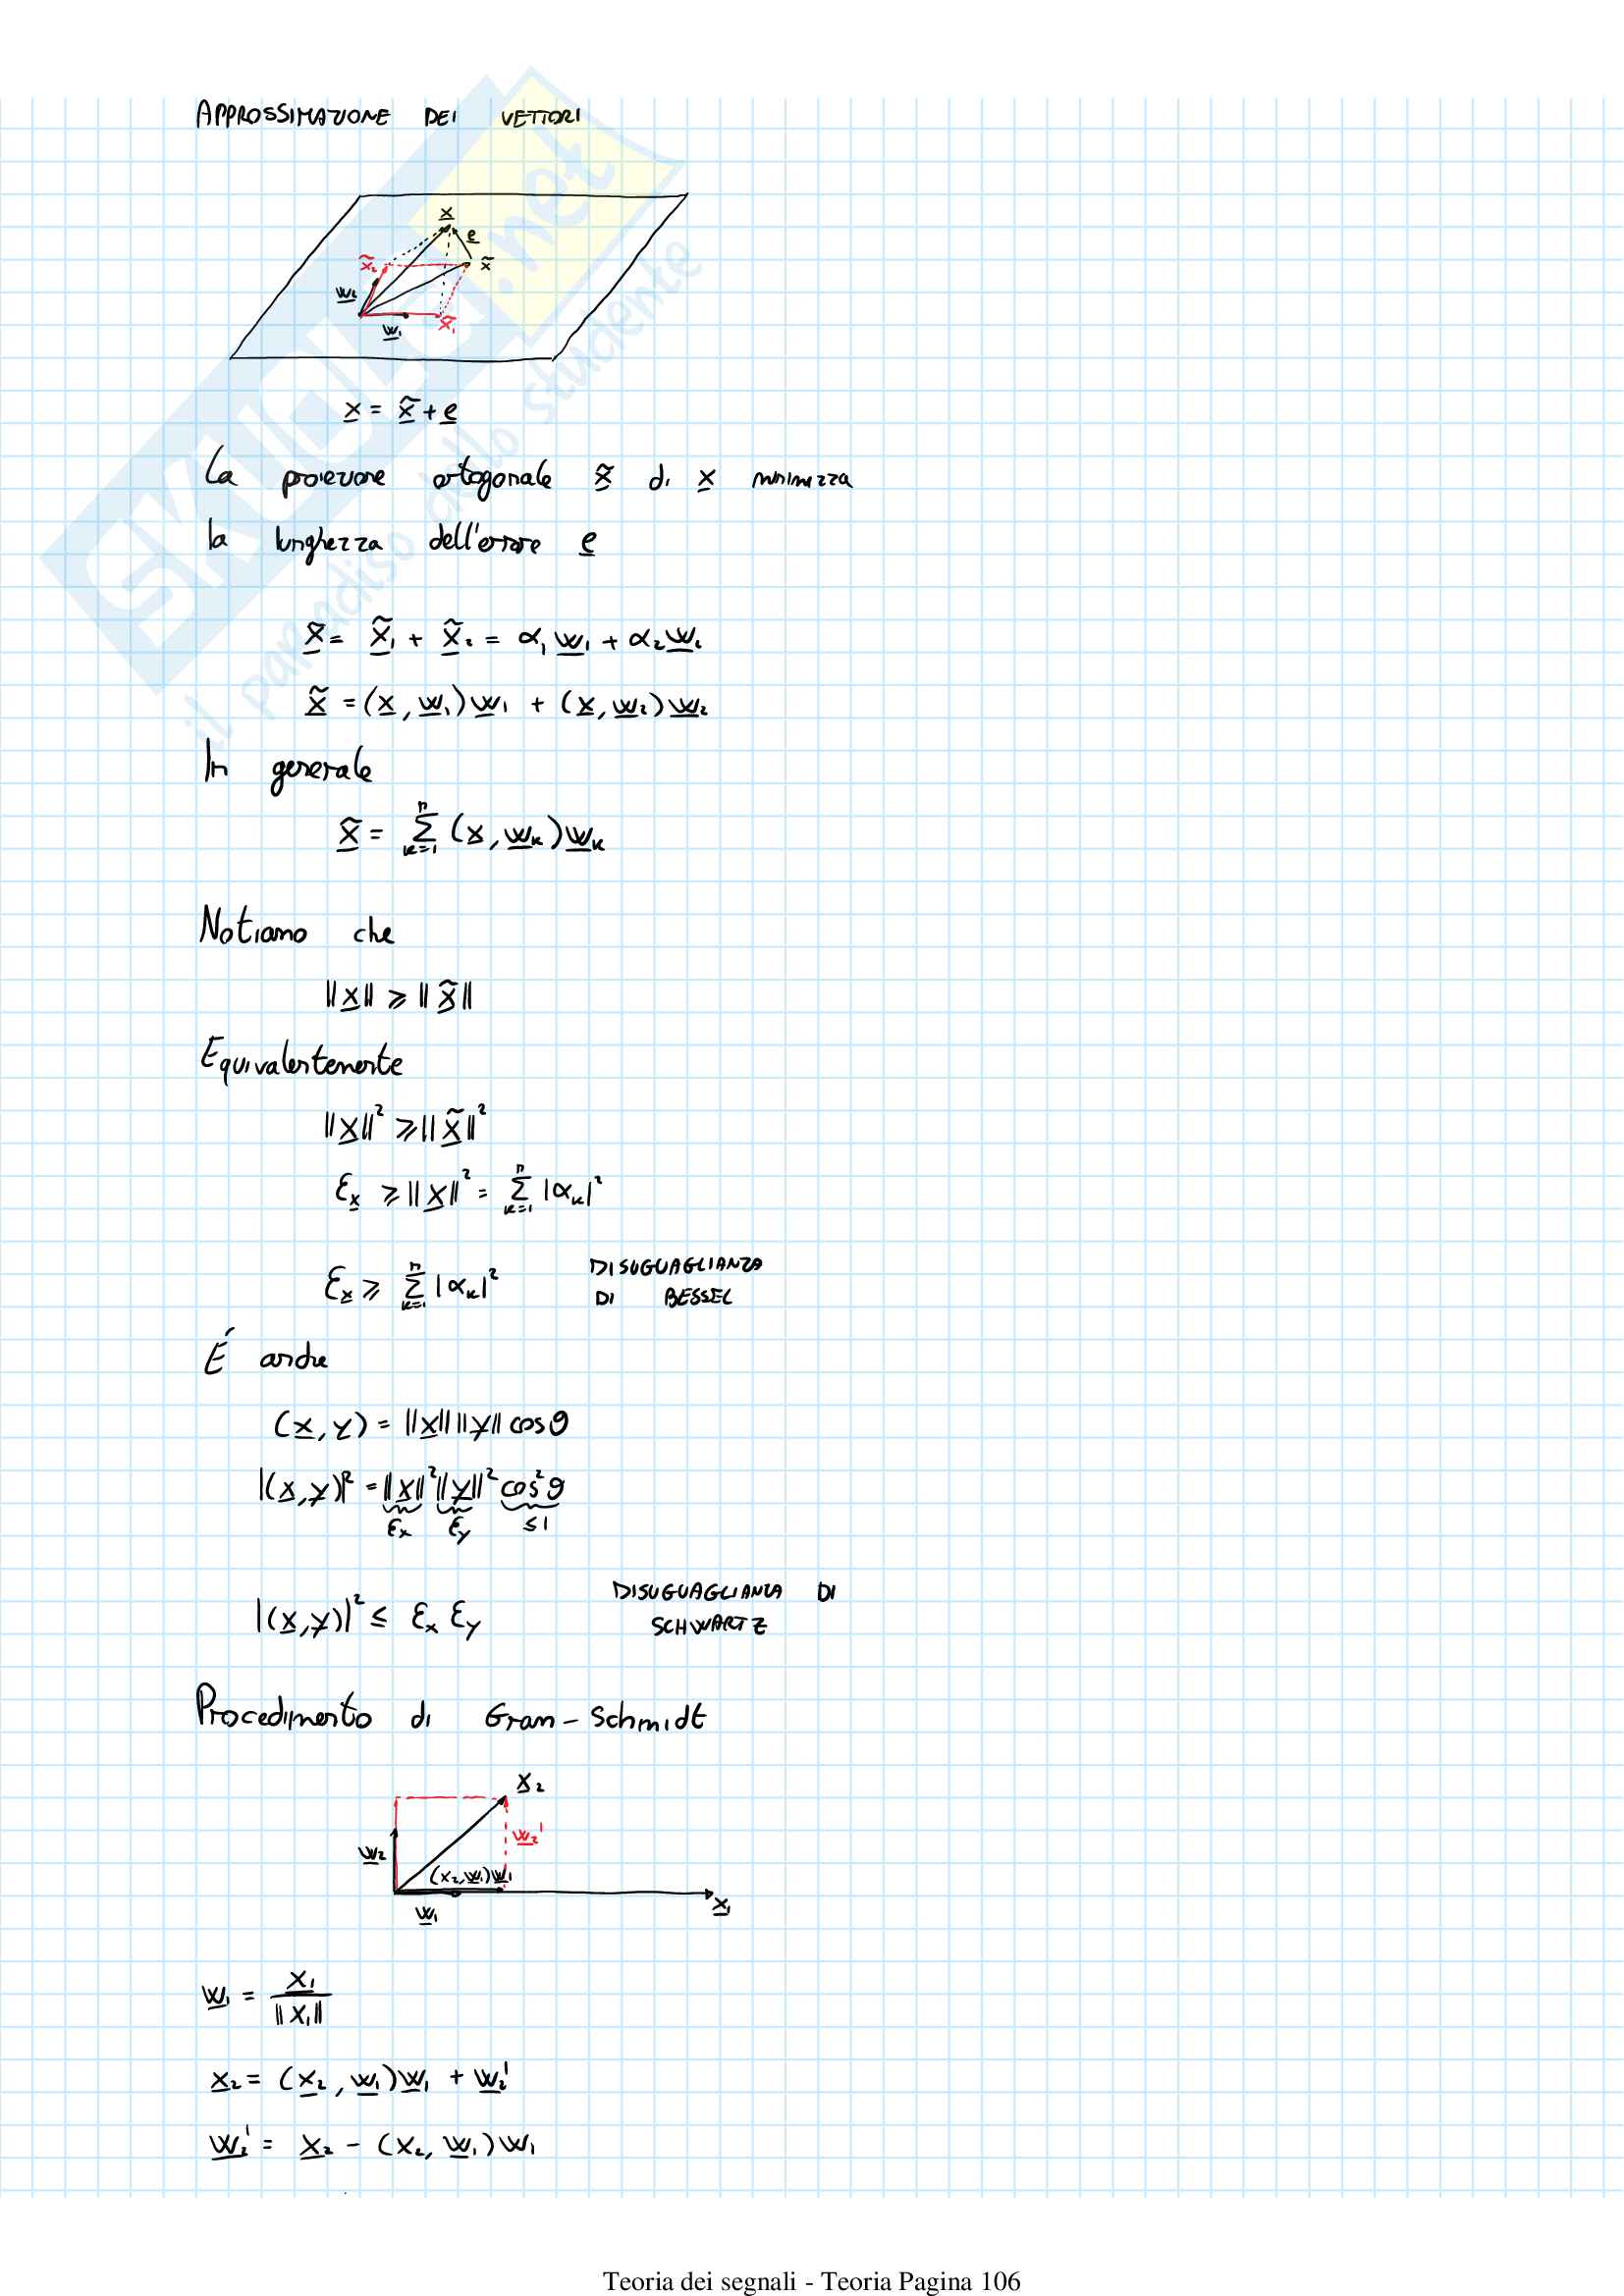 APPROSSIMAZIONE DEI VETTORI
x
e
x̃₂
x̃
w₂
w₁
x̃₁
x = x̃ + e
La proiezione ortogonale x̃ di x minimizza
la lunghezza dell'errore e
x̃ = x̃₁ + x̃₂ = α₁ w₁ + α₂ w₂
x̃ = (x, w₁) w₁ + (x, w₂) w₂
In generale
x̃ = Σₖ₌₁ⁿ (x, wₖ) wₖ
Notiamo che
||x|| ≥ ||x̃||
Equivalentemente
||x||² ≥ ||x̃||²
Ɛx ≥ ||x||² = Σₖ₌₁ⁿ |αₖ|²
Ɛx ≥ Σₖ₌₁ⁿ |αₖ|² DISUGUAGLIANZA
DI BESSEL
É anche
(x, y) = ||x|| ||y|| cos θ
|(x, y)|² = ||x||² ||y||² cos² θ
Ɛx Ɛy ≤ 1
|(x, y)|² ≤ Ɛx Ɛy DISUGUAGLIANZA DI
SCHWARTZ
Procedimento di Gram-Schmidt
x₂
w₂'
w₂
(x₂, w₁) w₁
w₁
x₁
w₁ = x₁ / ||x₁||
x₂ = (x₂, w₁) w₁ + w₂'
w₂' = x₂ - (x₂, w₁) w₁
Teoria dei segnali - Teoria Pagina 106
SKUOLA.net
il paradiso dello studente